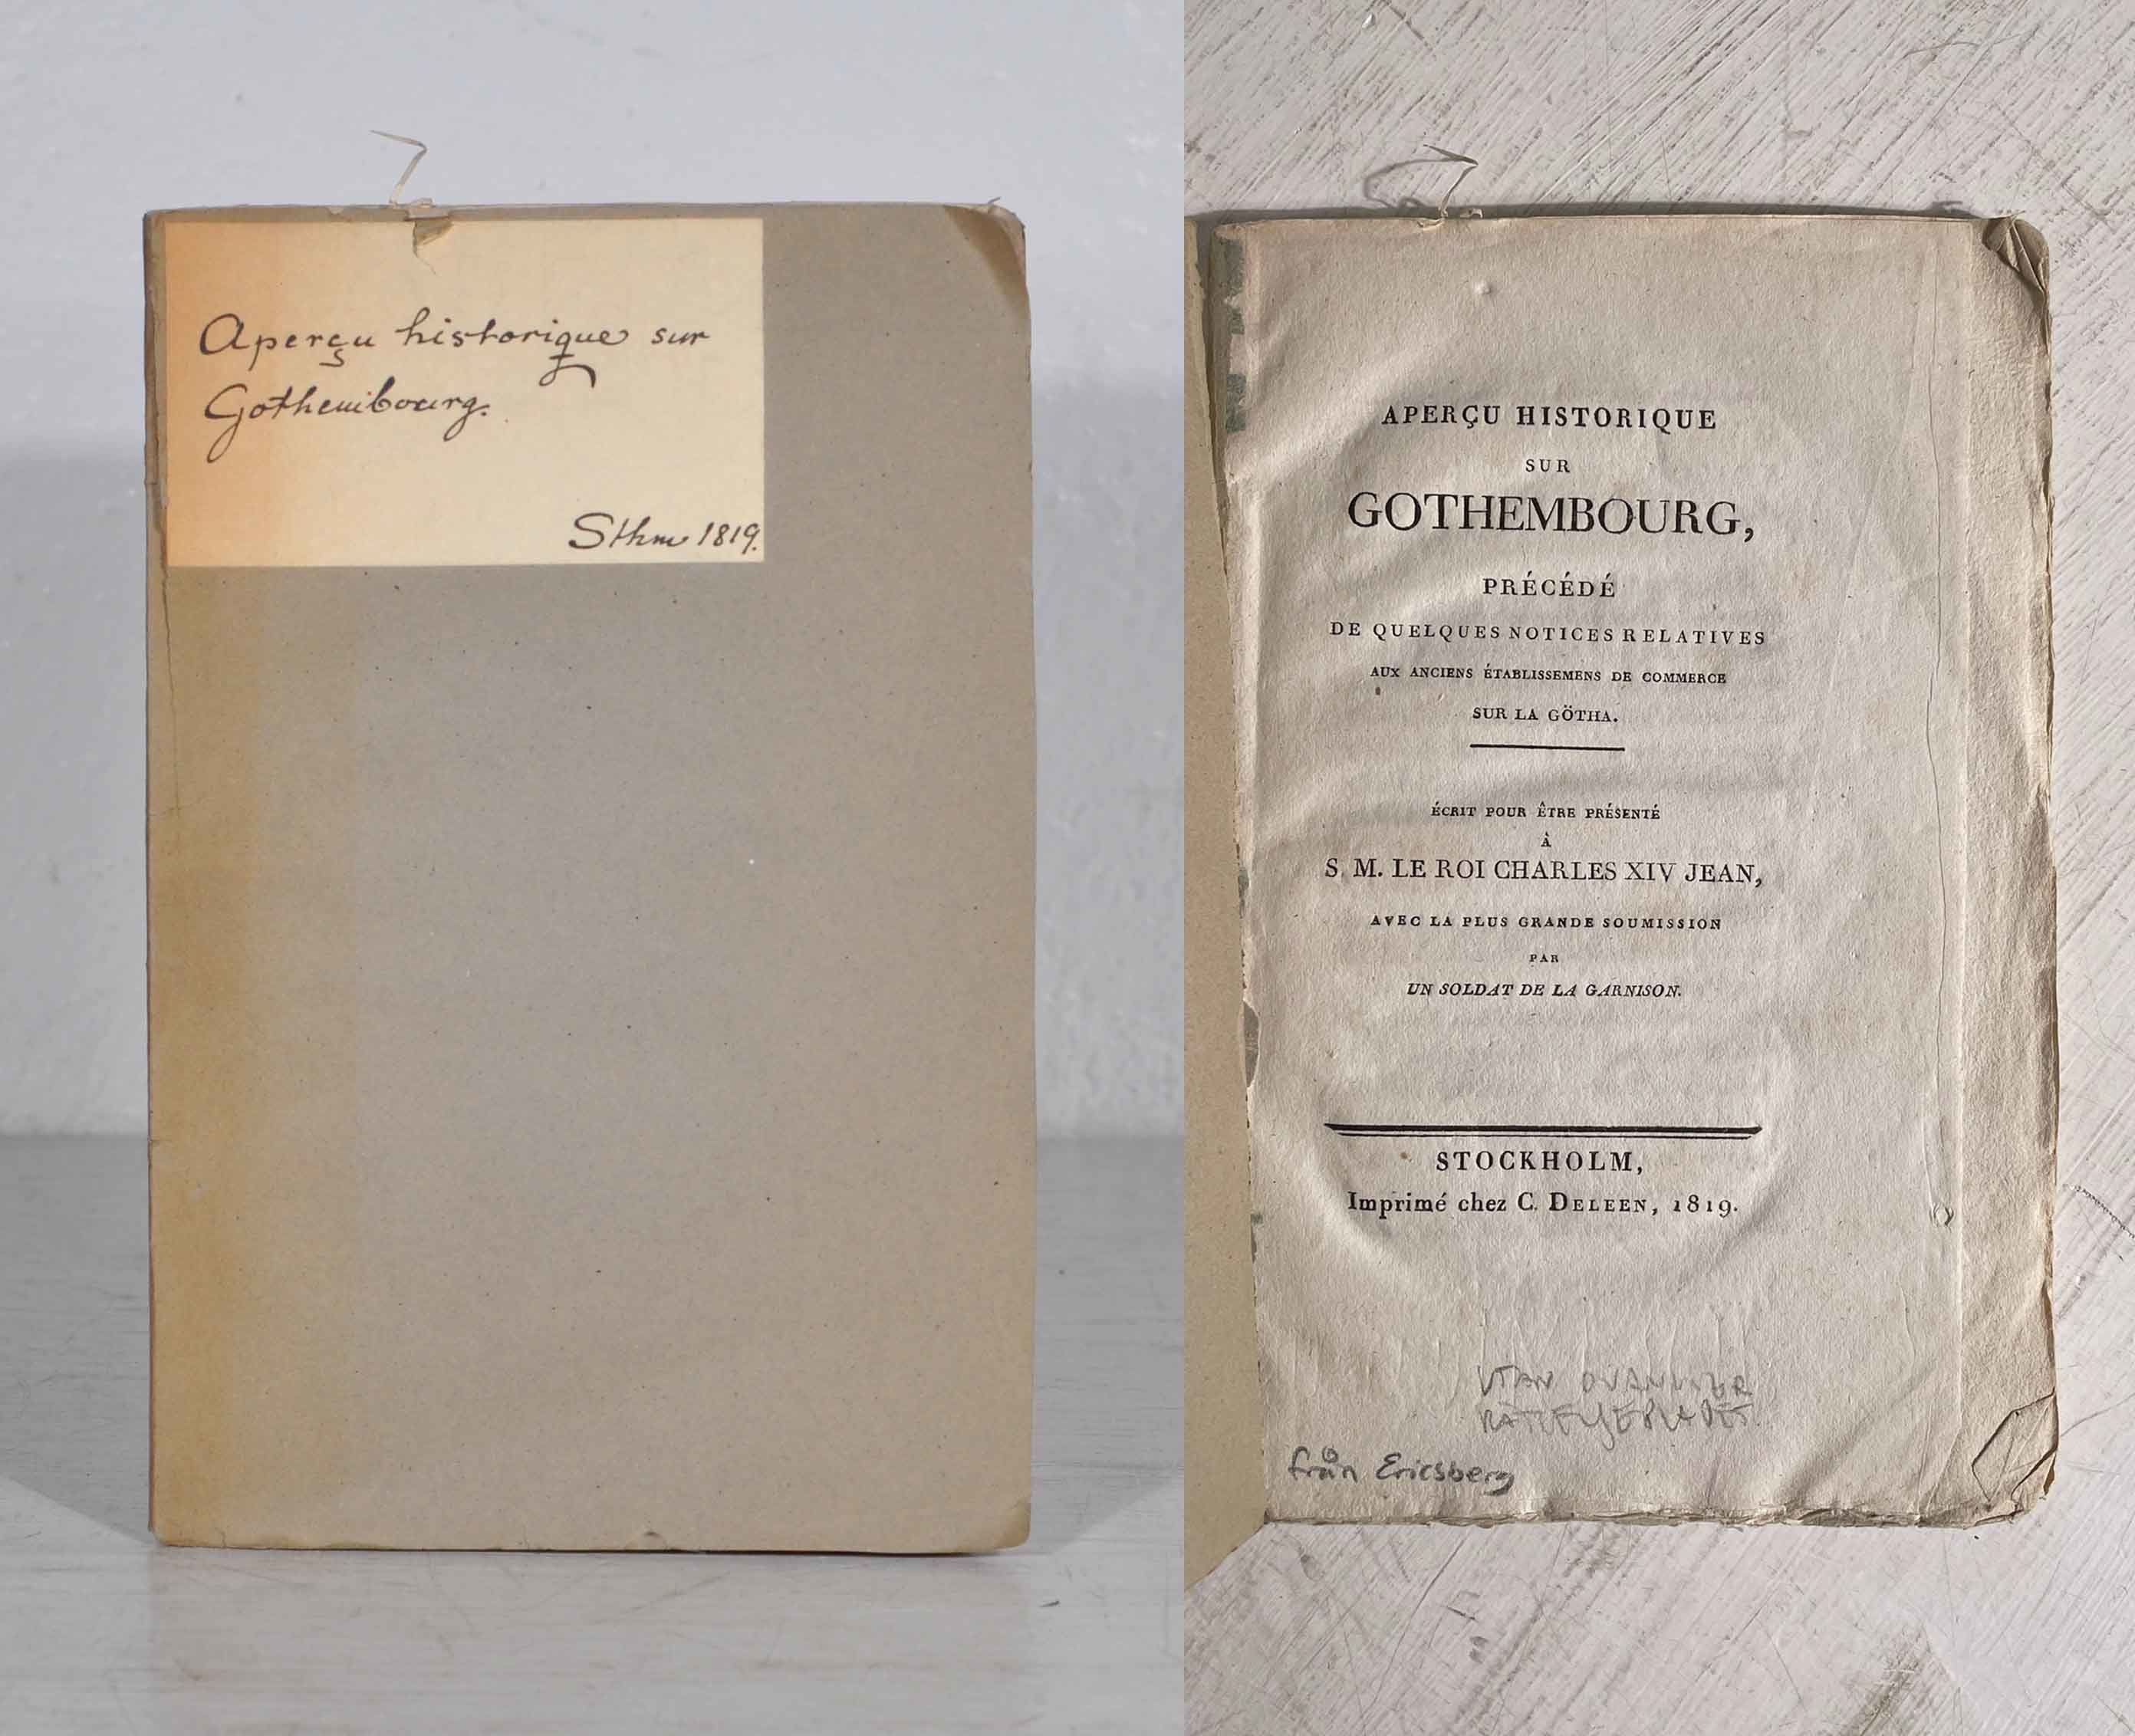 Aperçu historique sur
Gothembourg.
Sthm 1819.
APERÇU HISTORIQUE
SUR
GOTHEMBOURG,
PRÉCÉDÉ
DE QUELQUES NOTICES RELATIVES
AUX ANCIENS ÉTABLISSEMENS DE COMMERCE
SUR LA GÖTHA.
ÉCRIT POUR ÊTRE PRÉSENTÉ
À
S. M. LE ROI CHARLES XIV JEAN,
AVEC LA PLUS GRANDE SOUMISSION
PAR
UN SOLDAT DE LA GARNISON.
STOCKHOLM,
Imprimé chez C. DELEEN, 1819.
UTAN
från Ericsberg